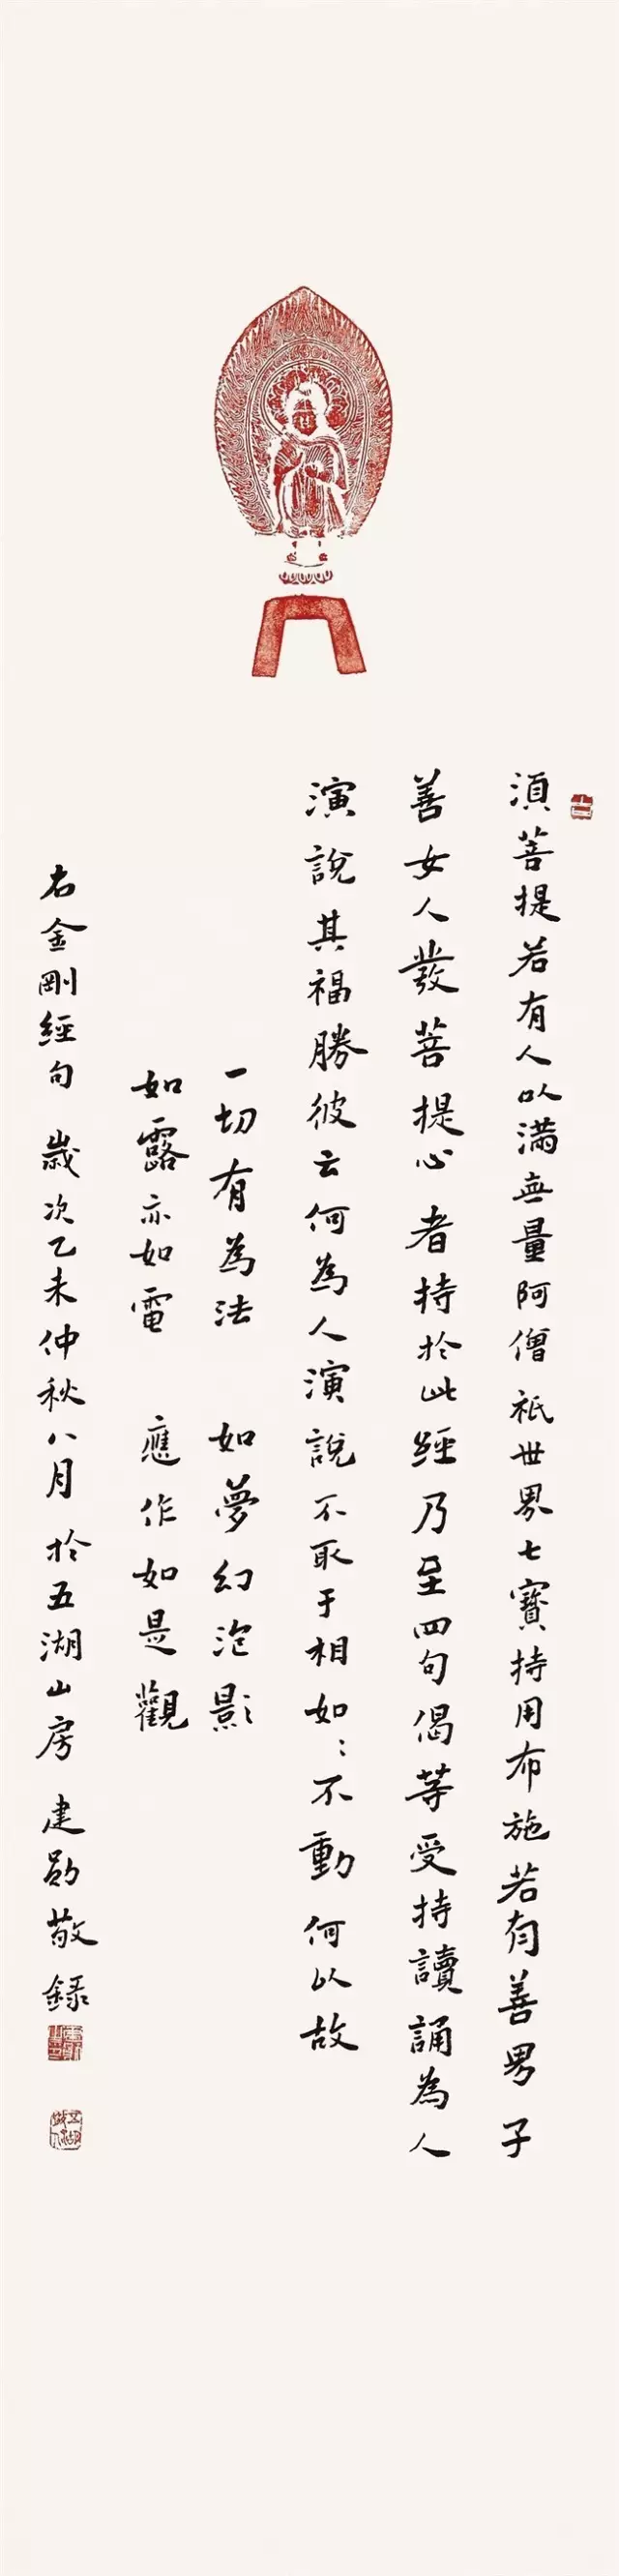 須菩提若有人以滿無量阿僧祇世界七寶持用布施若有善男子
善女人發菩提心者持於此經乃至四句偈等受持讀誦為人
演說其福勝彼云何為人演說不取于相如：不動何以故
一切有為法　如夢幻泡影
如露亦如電　應作如是觀
右金剛經句　歲次乙未仲秋八月於五湖山房　建勛敬錄